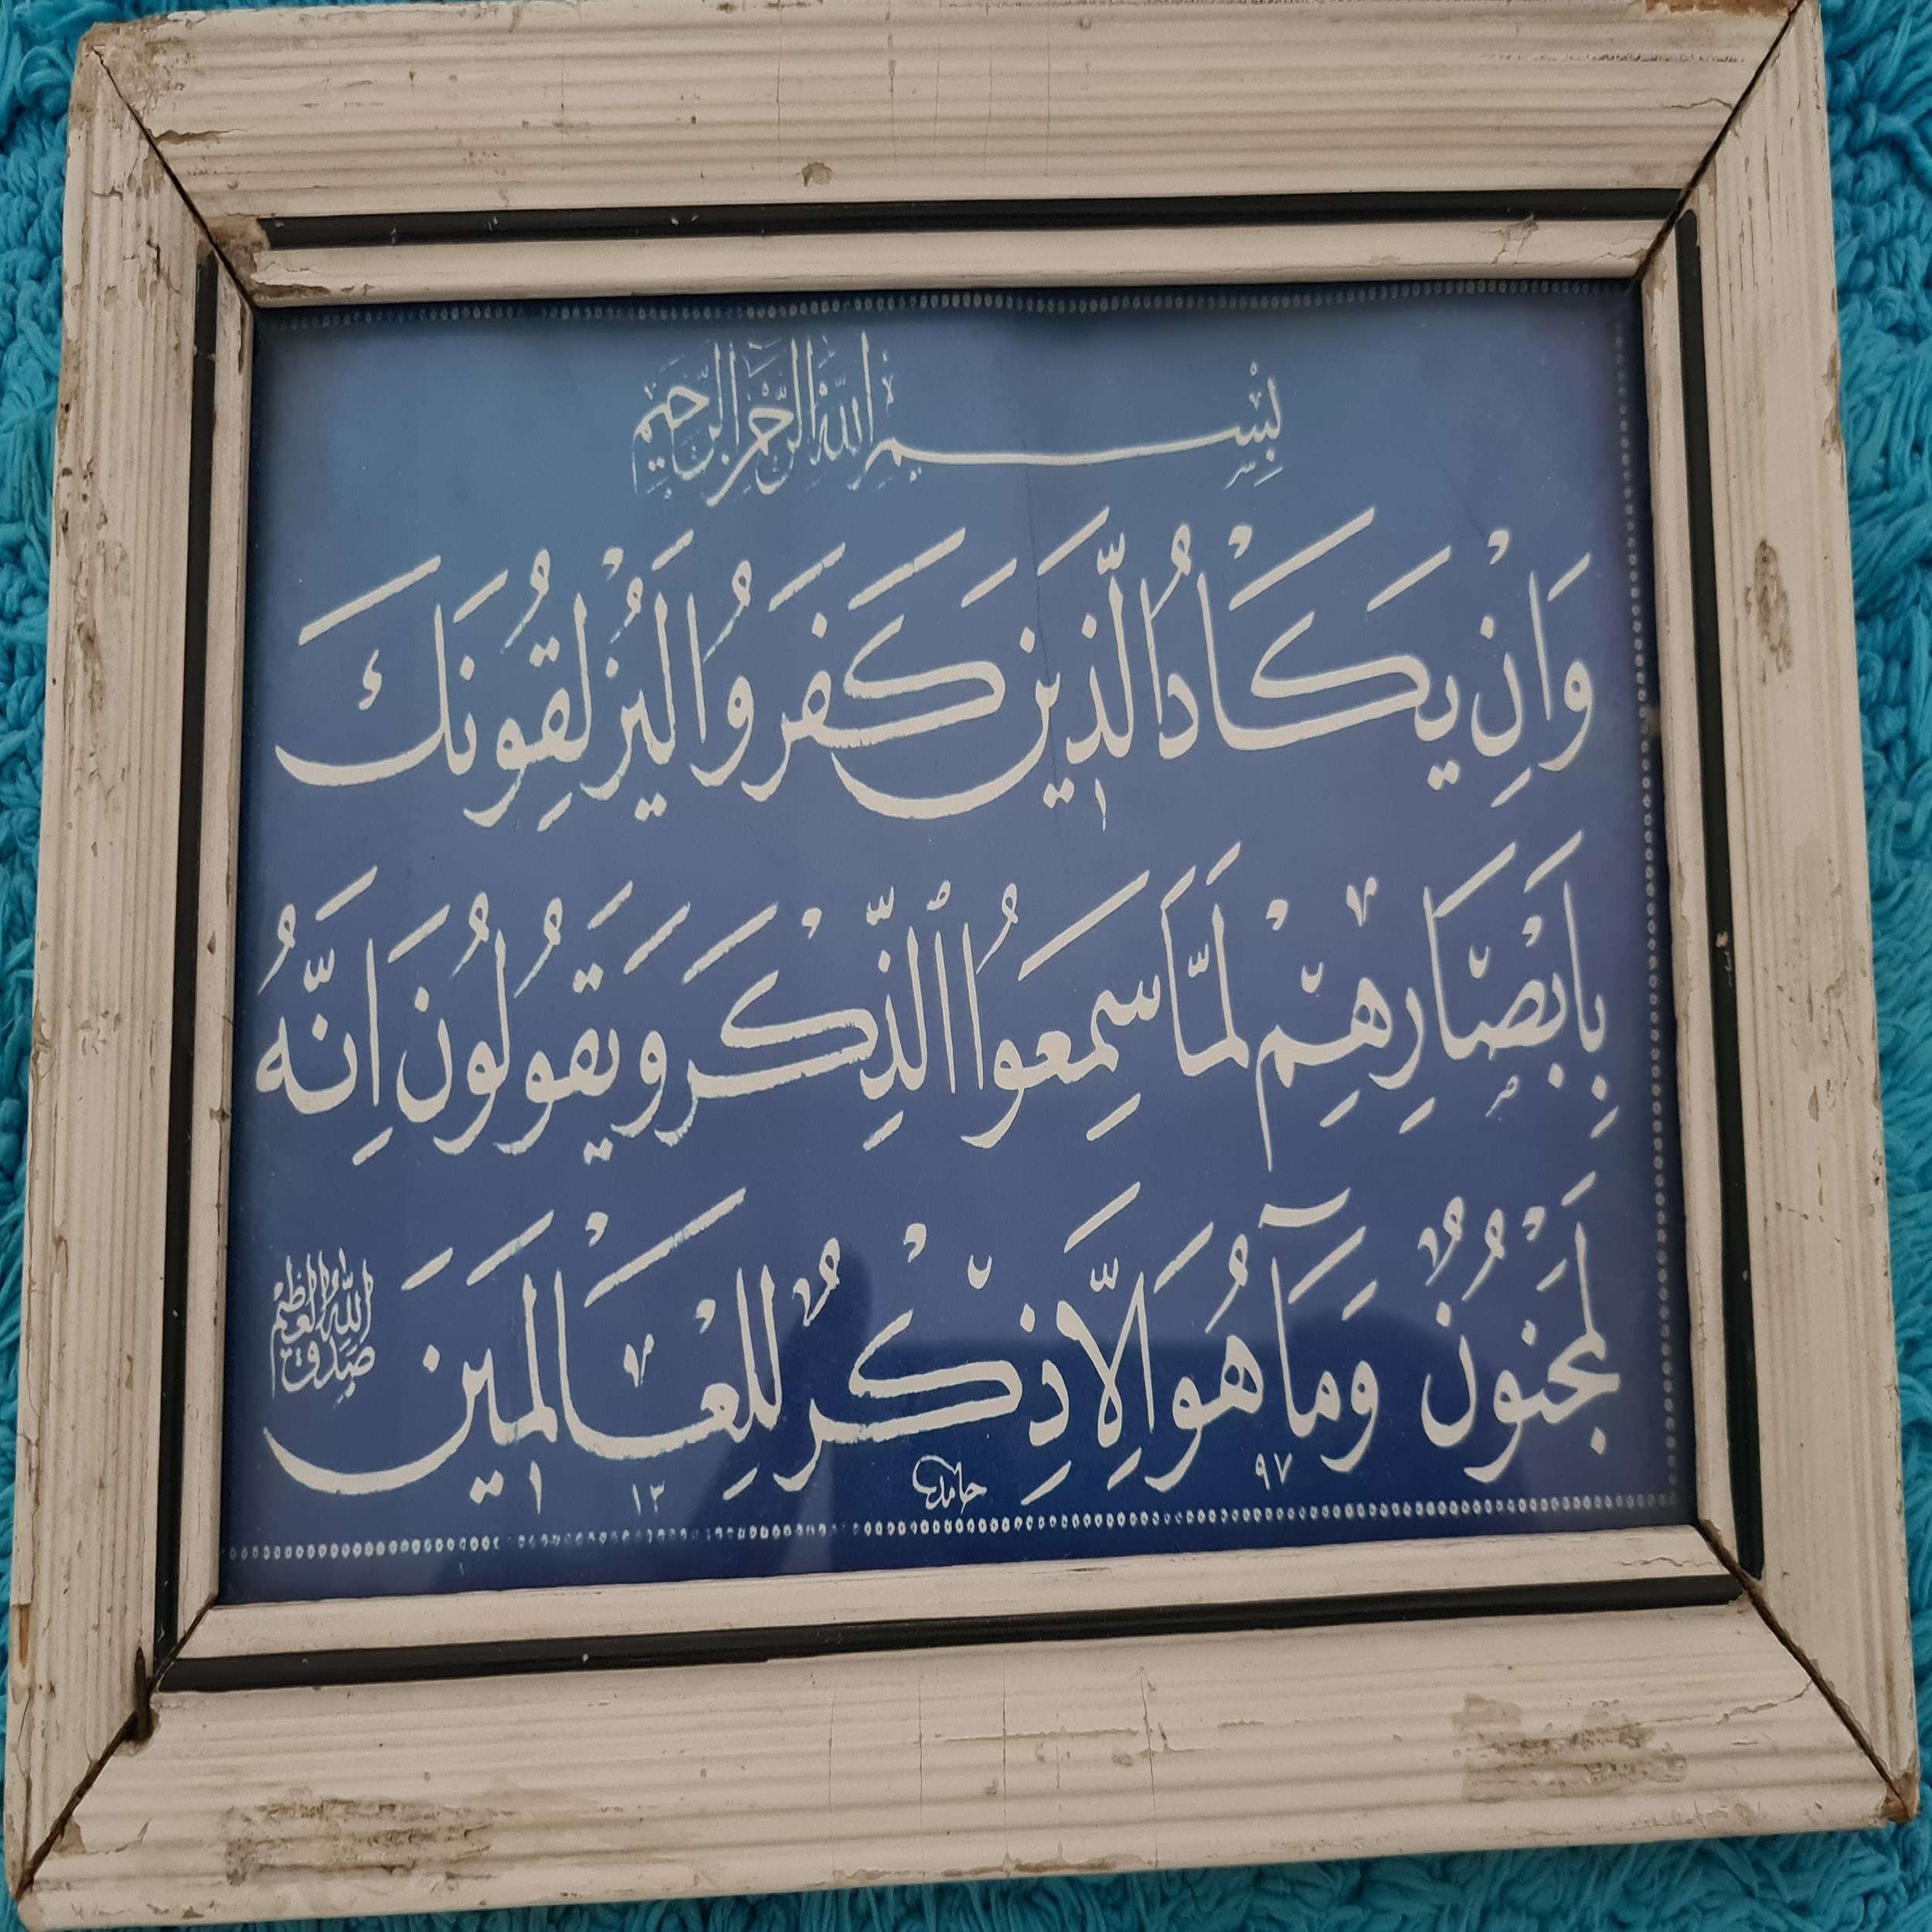 بِسْمِ اللّٰهِ الرَّحْمٰنِ الرَّحِيمِ
وَاِنْ يَكَادُ الَّذِينَ كَفَرُوا لَيُزْلِقُونَكَ
بِاَبْصَارِهِمْ لَمَّا سَمِعُوا الذِّكْرَ وَيَقُولُونَ اِنَّهُ
لَمَجْنُونٌ وَمَآ هُوَ اِلَّا ذِكْرٌ لِلْعَالَمِينَ
صَدَقَ اللّٰهُ الْعَظِيمُ
١٣ حامد ٩٧